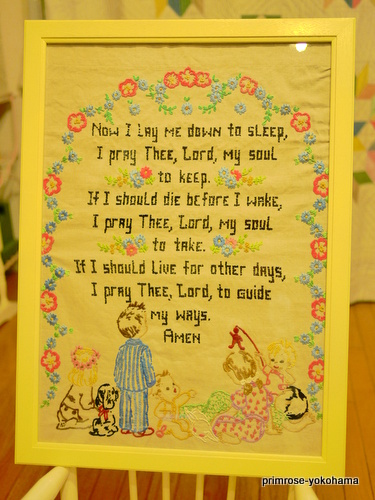 Now I lay me down to sleep,
I pray Thee, Lord, my soul
to keep.
If I should die before I wake,
I pray Thee, Lord, my soul
to take.
If I should live for other days,
I pray Thee, Lord, to guide
my ways.
Amen
primrose-yokohama